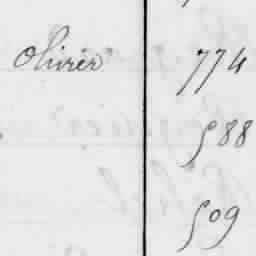 Olivier 774
588
509